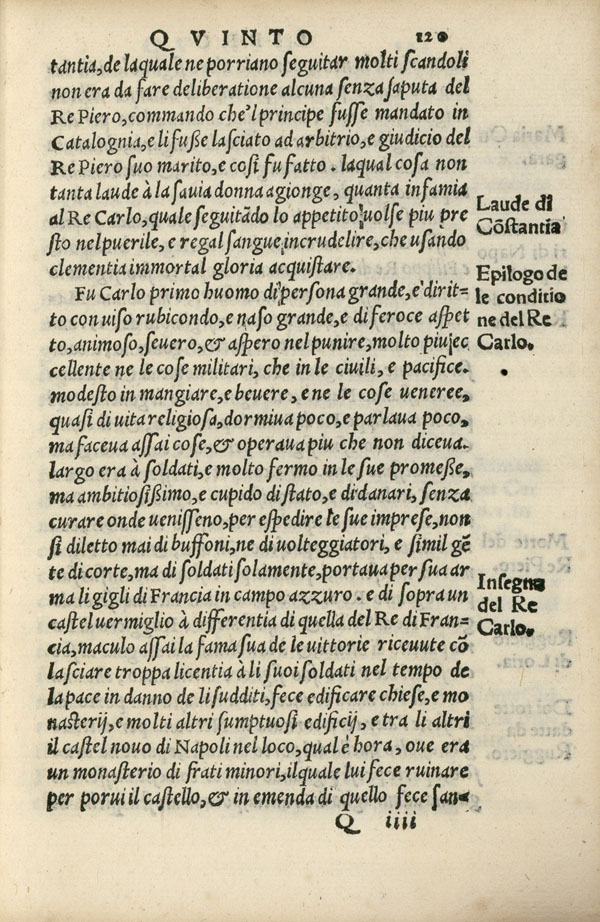 QVINTO 120
tantia, de laquale ne porriano seguitar molti scandoli
non era da fare deliberatione alcuna senza saputa del
Re Piero, commando che'l principe fusse mandato in
Catalognia, e li fuße lasciato ad arbitrio, e giudicio del
Re Piero suo marito, e cosi fu fatto. laqual cosa non
tanta laude à la savia donna agionge, quanta infamia
al Re Carlo, quale seguitãdo lo appetito, uolse piu pre
sto nel puerile, e regal sangue incrudelire, che usando
clementia immortal gloria acquistare.
Laude di
Cõstantia
Fu Carlo primo huomo di persona grande, e dirit-
to con uiso rubicondo, e naso grande, e di feroce aspet
to, animoso, severo, & aspero nel punire, molto piu ec
cellente ne le cose militari, che in le civili, e pacifice.
modesto in mangiare, e bevere, e ne le cose veneree,
quasi di uita religiosa, dormiva poco, e parlava poco,
ma faceva assai cose, & operava piu che non diceva.
largo era à soldati, e molto fermo in le sue promeße,
ma ambitiosißimo, e cupido di stato, e di danari, senza
curare onde venisseno, per espedire le sue imprese, non
si diletto mai di buffoni, ne di uolteggiatori, e simil gẽ
te di corte, ma di soldati solamente, portava per sua ar
ma li gigli di Francia in campo azzuro. e di sopra un
castel vermiglio à differentia di quella del Re di Fran-
cia, maculo assai la fama sua de le vittorie riceuute cõ
lasciare troppa licentia à li suoi soldati nel tempo de
la pace in danno de li sudditi, fece edificare chiese, e mo
nasterij, e molti altri sumptuosi edificij, e tra li altri
il castel novo di Napoli nel loco, qual è hora, ove era
un monasterio di frati minori, il quale lui fece ruinare
per porui il castello, & in emenda di quello fece san-
Epilogo de
le conditio
ne del Re
Carlo.
Insegna
del Re
Carlo.
Q iiii